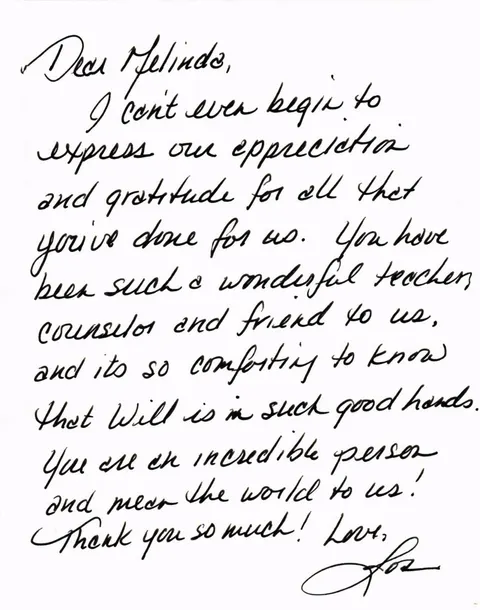 Dear Melinda,
I can't even begin to
express our appreciation
and gratitude for all that
you've done for us. You have
been such a wonderful teacher,
counselor and friend to us,
and its so comforting to know
that Will is in such good hands.
You are an incredible person
and mean the world to us!
Thank you so much! Love,